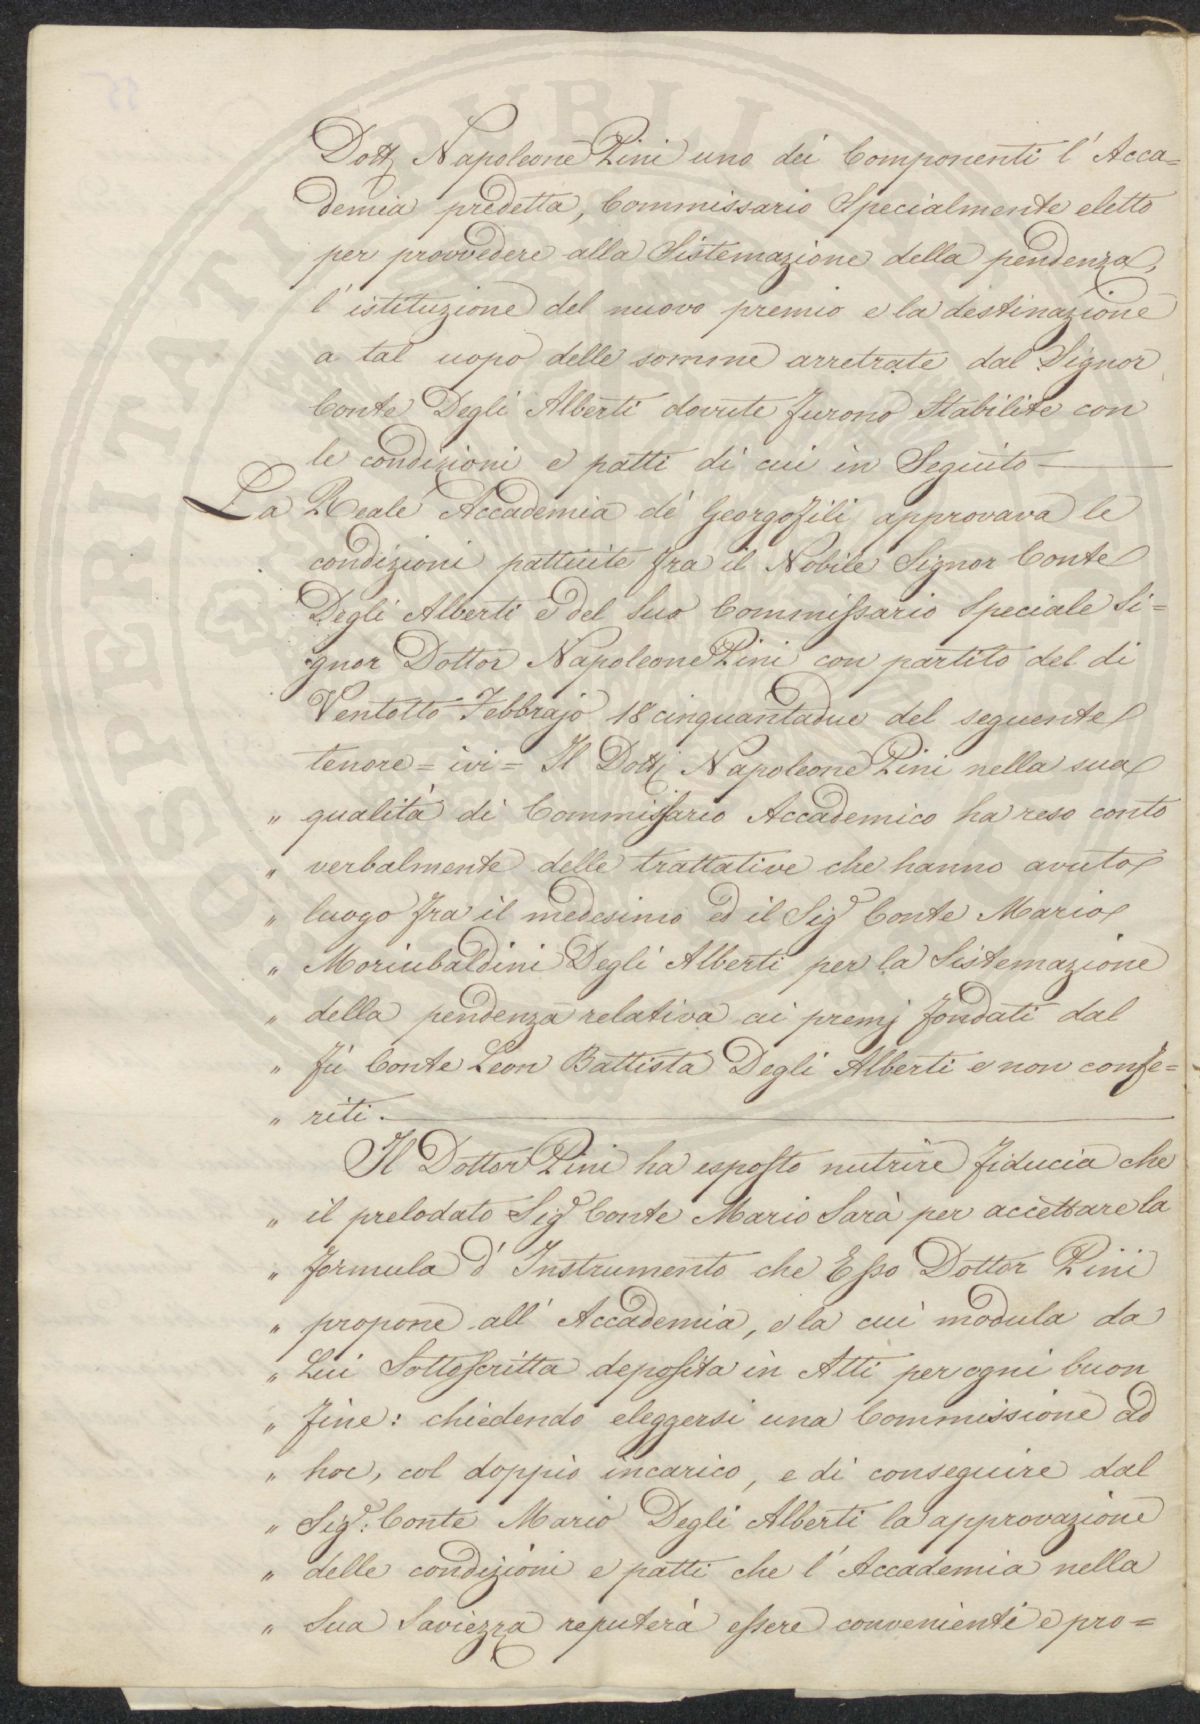 Dott. Napoleone Pini uno dei Componenti l' Acca=
demia predetta, Commissario Specialmente eletto
per provvedere alla Sistemazione della pendenza,
l' istituzione del nuovo premio e la destinazione
a tal uopo delle somme arretrate dal Signor
Conte Degli Alberti dovute furono Stabilite con
le condizioni e patti di cui in Seguito —
La Reale Accademia de' Georgofili approvava le
condizioni pattuite fra il Nobile Signor Conte
Degli Alberti e del Suo Commissario Speciale Si=
gnor Dottor Napoleone Pini con partito del di
Ventotto Febbrajo 18 cinquantadue del seguente
tenore = ivi = Il Dott. Napoleone Pini nella sua
„ qualità di Commissario Accademico ha reso conto
„ verbalmente delle trattative che hanno avuto
„ luogo fra il medesimo ed il Sig.r Conte Mario
„ Moriubaldini Degli Alberti per la Sistemazione
„ della pendenza relativa ai premj fondati dal
„ fù Conte Leon Battista Degli Alberti e non confe=
„ riti. —
Il Dottor Pini ha esposto nutrire fiducia che
„ il prelodato Sig.r Conte Mario Sarà per accettare la
„ formula d' Instrumento che Esso Dottor Pini
„ propone all' Accademia, e la cui modula da
„ Lui Sottoscritta deposita in Atti per ogni buon
„ fine: chiedendo eleggersi una Commissione ad
„ hoc, col doppio incarico, e di conseguire dal
„ Sig.r: Conte Mario Degli Alberti la approvazione
„ delle condizioni e patti che l' Accademia nella
„ Sua Saviezza reputerà essere convenienti e pro=
SOSPERITATI PUBLICAE